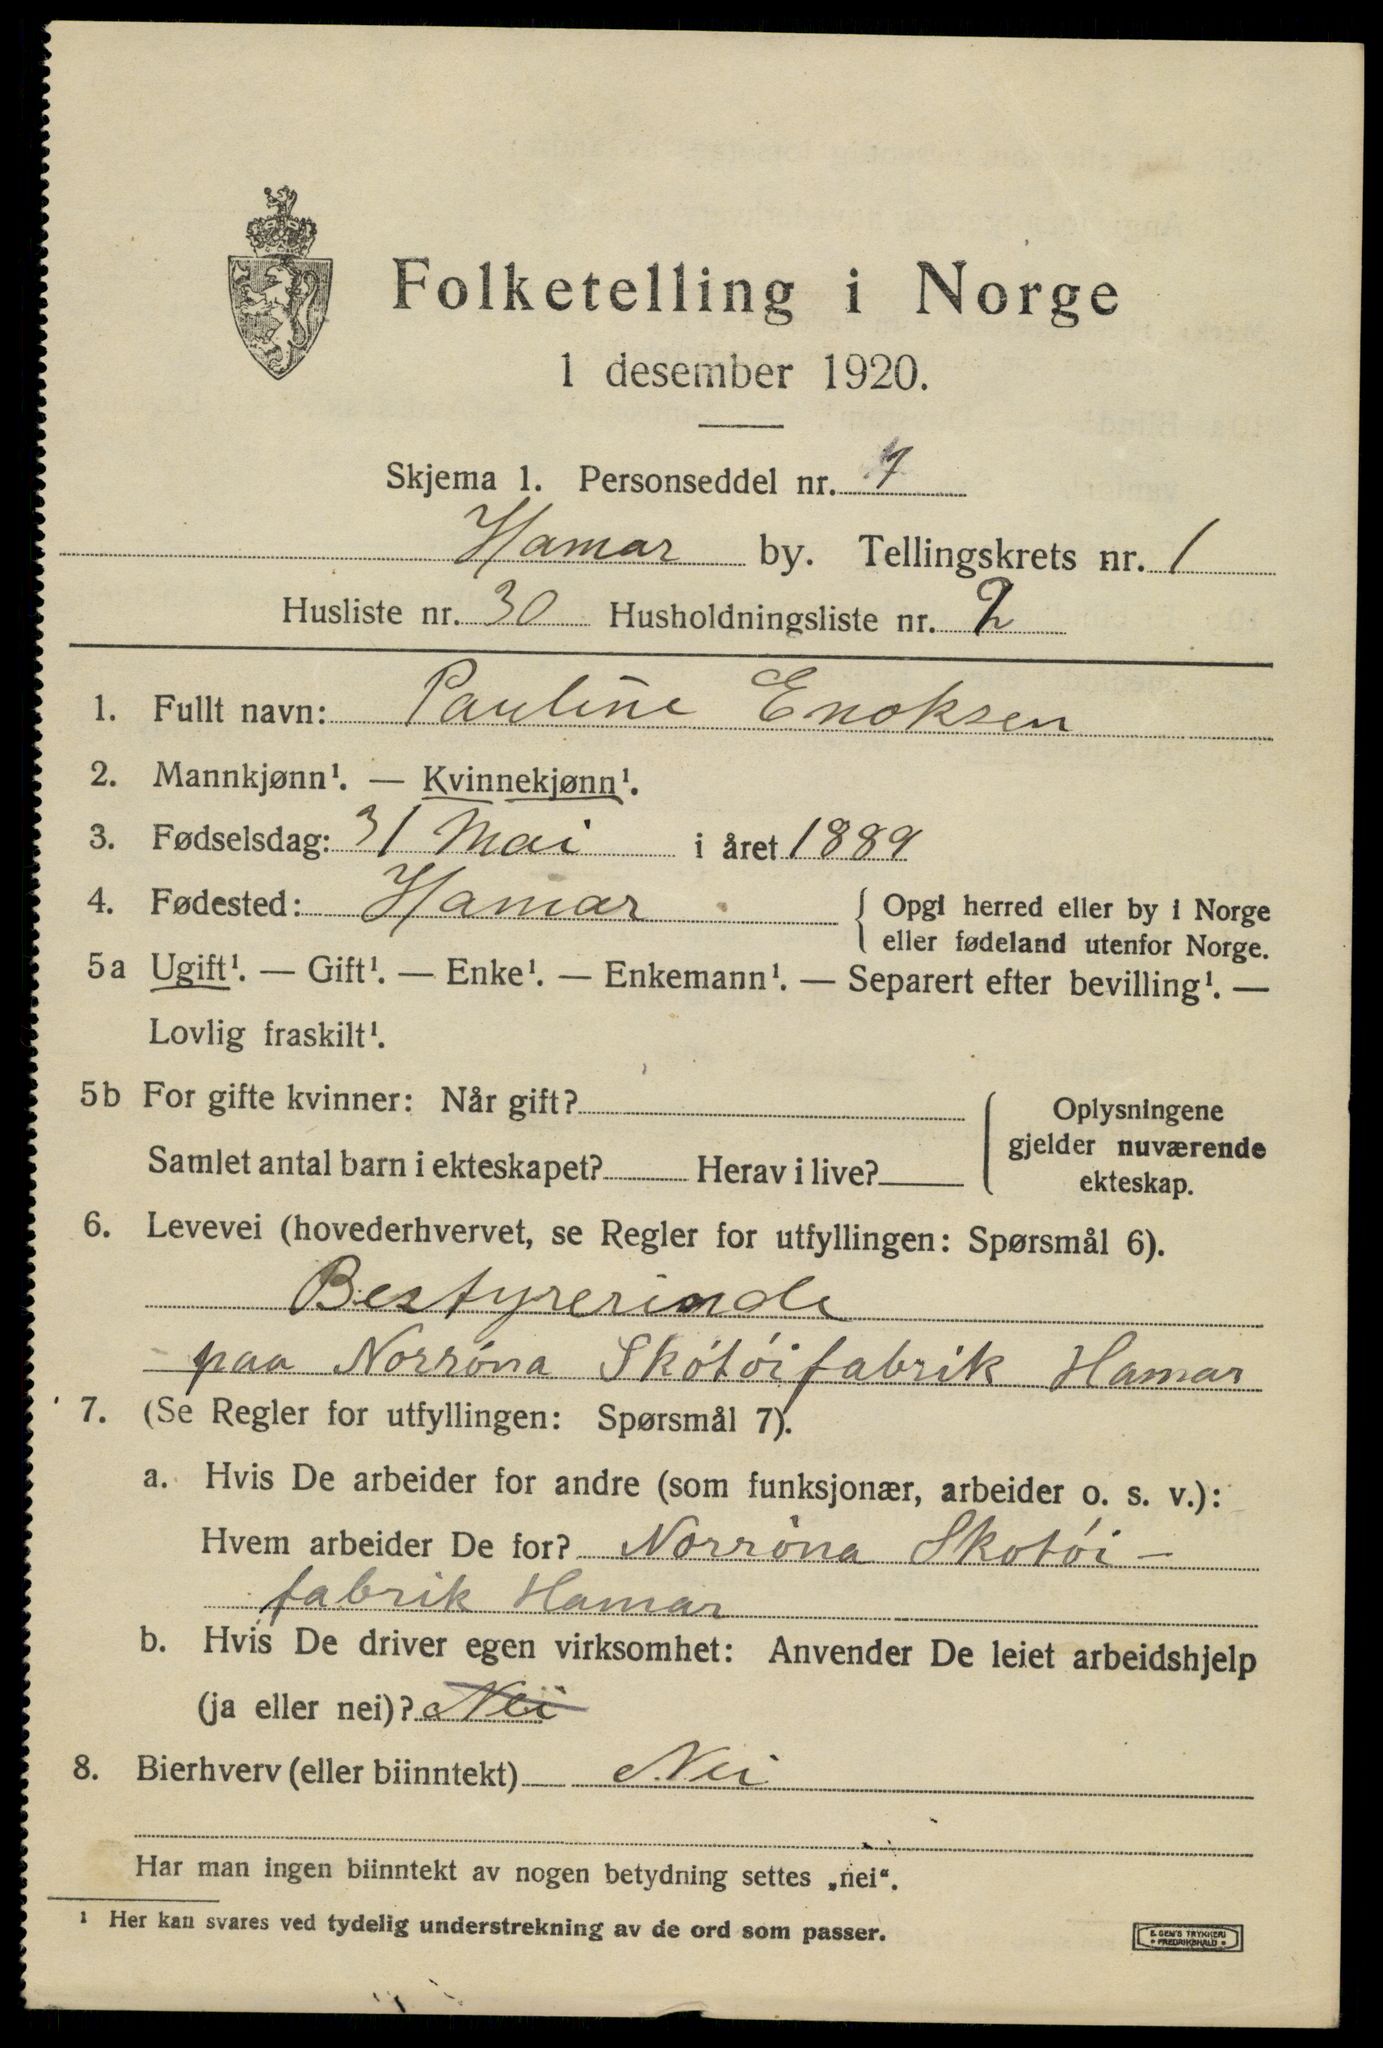 Folketelling i Norge
1 desember 1920.
Skjema 1. Personseddel nr. 7
Hamar by. Tellingskrets nr. 1
Husliste nr. 30 Husholdningsliste nr. 2
1. Fullt navn: Pauline Enoksen
2. Mannkjønn¹. — Kvinnekjønn¹.
3. Fødselsdag: 31 Mai i året 1889
4. Fødested: Hamar { Opgi herred eller by i Norge
eller fødeland utenfor Norge.
5a Ugift¹. — Gift¹. — Enke¹. — Enkemann¹. — Separert efter bevilling¹. —
Lovlig fraskilt¹.
5b For gifte kvinner: Når gift?
Samlet antal barn i ekteskapet? Herav i live?
Oplysningene
gjelder nuværende
ekteskap.
6. Levevei (hovederhvervet, se Regler for utfyllingen: Spørsmål 6).
Bestyrerinde
paa Norróna Skótóifabrik Hamar
7. (Se Regler for utfyllingen: Spørsmål 7).
a. Hvis De arbeider for andre (som funksjonær, arbeider o. s. v.):
Hvem arbeider De for? Norróna Skotói-
fabrik Hamar
b. Hvis De driver egen virksomhet: Anvender De leiet arbeidshjelp
(ja eller nei)? Nei
8. Bierhverv (eller biinntekt) Nei
Har man ingen biinntekt av nogen betydning settes „nei“.
¹ Her kan svares ved tydelig understrekning av de ord som passer.
E. SEM'S TRYKKERI
• FREDRIKSHALD •